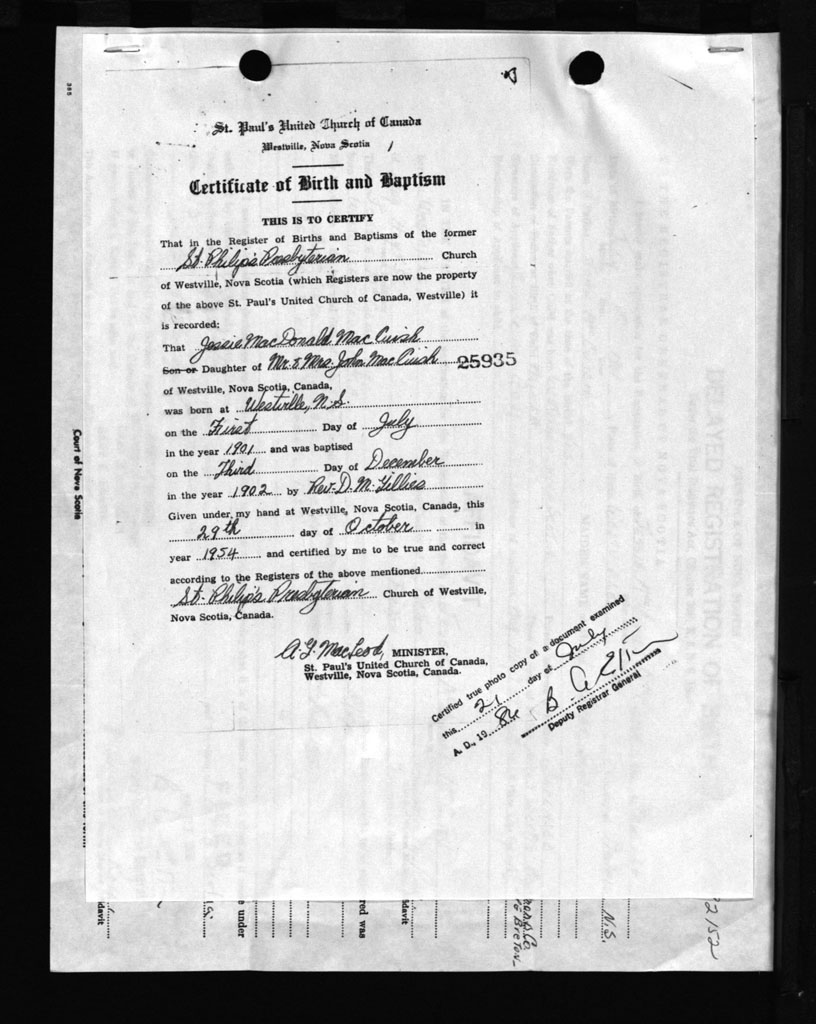 St. Paul's United Church of Canada
Westville, Nova Scotia
Certificate of Birth and Baptism
THIS IS TO CERTIFY
That in the Register of Births and Baptisms of the former
St. Philip's Presbyterian Church
of Westville, Nova Scotia (which Registers are now the property
of the above St. Paul's United Church of Canada, Westville) it
is recorded:
That Jessie MacDonald MacCuish
Son or Daughter of Mr. & Mrs. John MacCuish 25935
of Westville, Nova Scotia, Canada,
was born at Westville, N.S.
on the First Day of July
in the year 1901 and was baptised
on the Third Day of December
in the year 1902 by Rev. D. M. Gillies
Given under my hand at Westville, Nova Scotia, Canada, this
29th day of October in
year 1954 and certified by me to be true and correct
according to the Registers of the above mentioned
St. Philip's Presbyterian Church of Westville,
Nova Scotia, Canada.
MacLeod, MINISTER,
St. Paul's United Church of Canada,
Westville, Nova Scotia, Canada.
Certified true photo copy of a document examined
this 21 day of July
A. D., 19 86
Deputy Registrar General
Court of Nova Scotia
davit
e under
red was
idavit
Breton
N.S.
2152